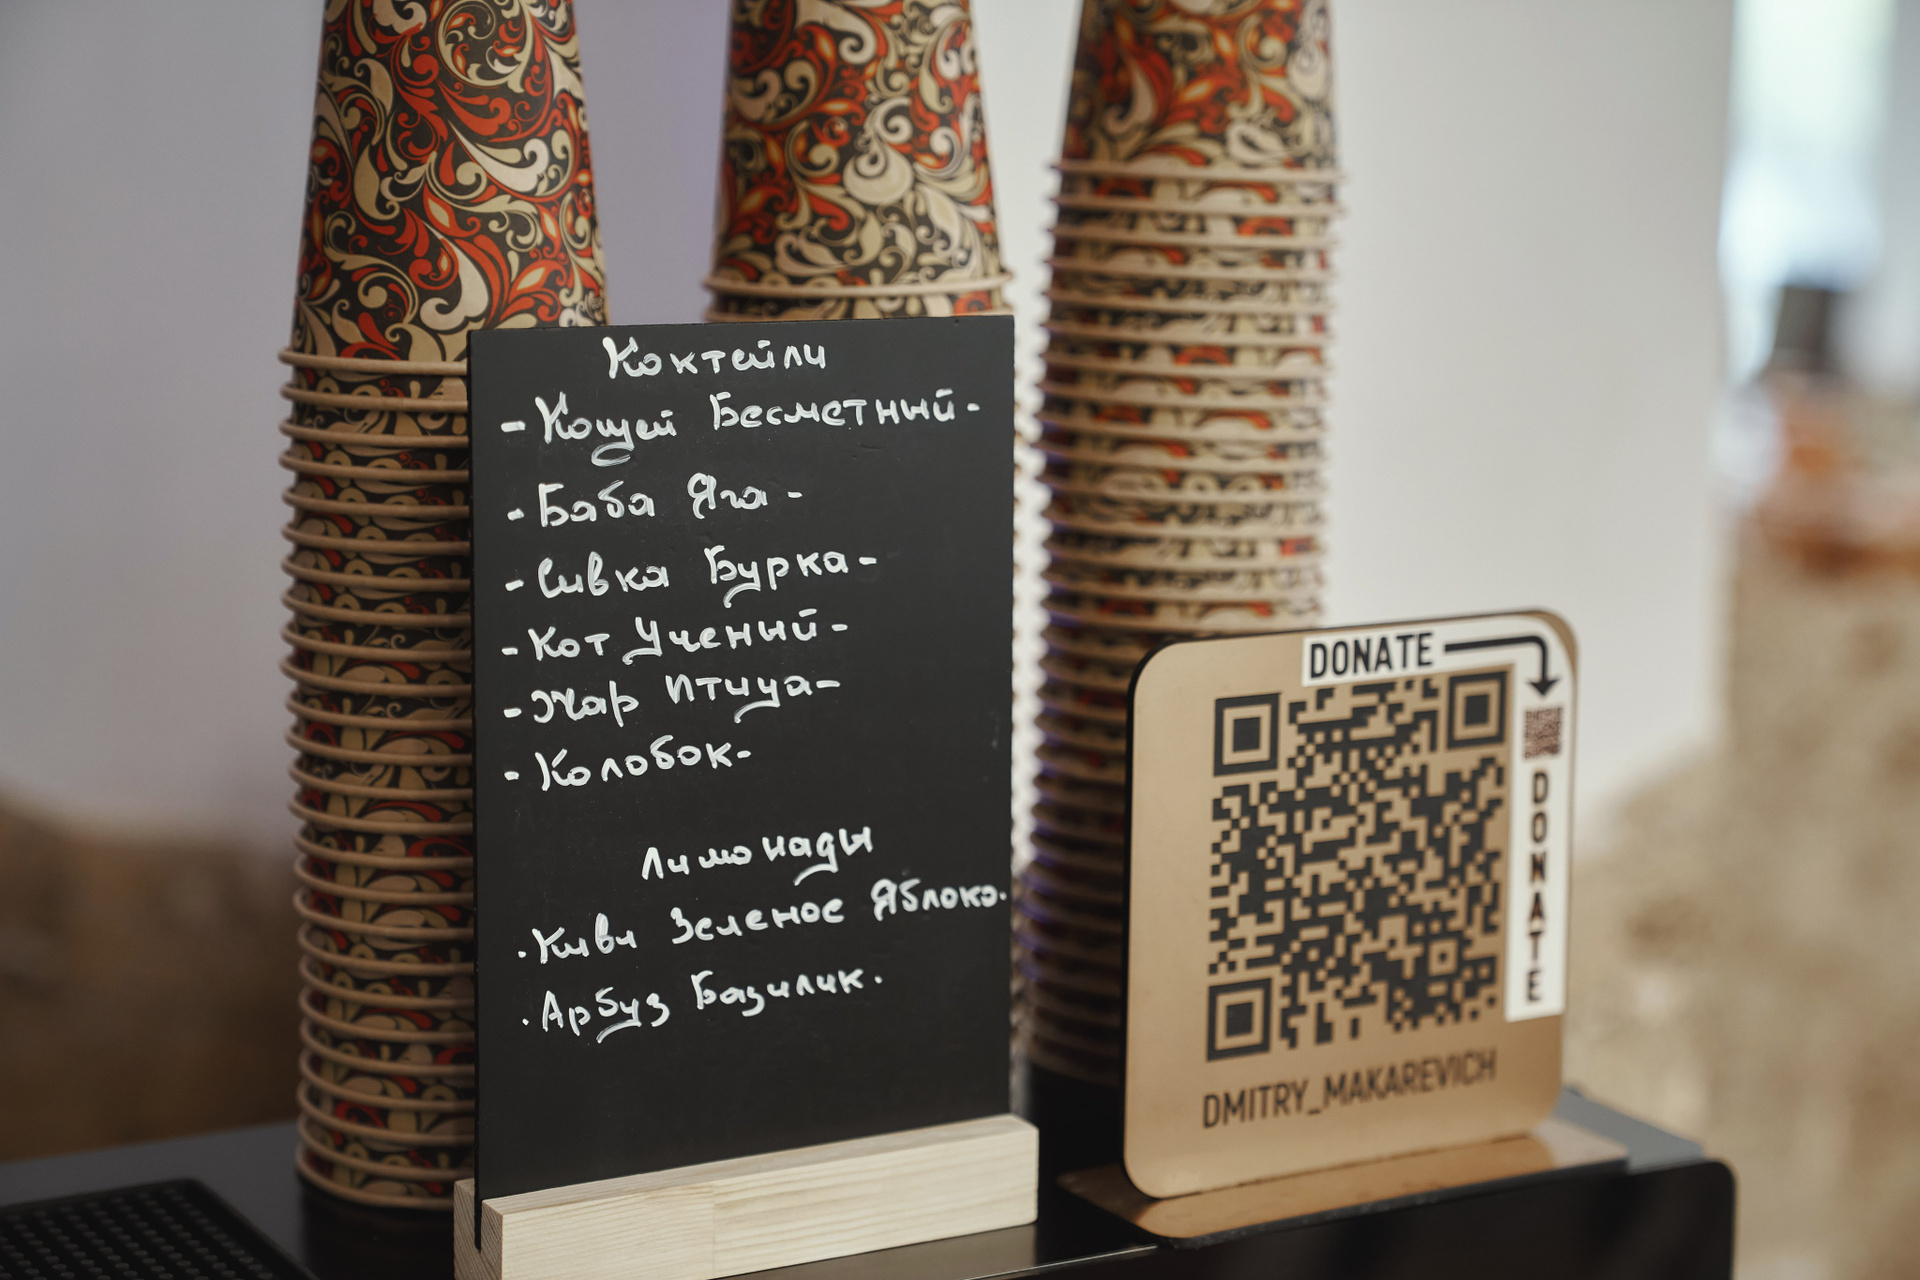 Коктейли
- Кощей Бесметный -
- Баба Яга -
- Сивка Бурка -
- Кот Учений -
- Жар птица -
- Колобок -
Лимонады
· Киви Зеленое Яблоко.
· Арбуз Базилик.
DONATE
DONATE
DMITRY_MAKAREVICH